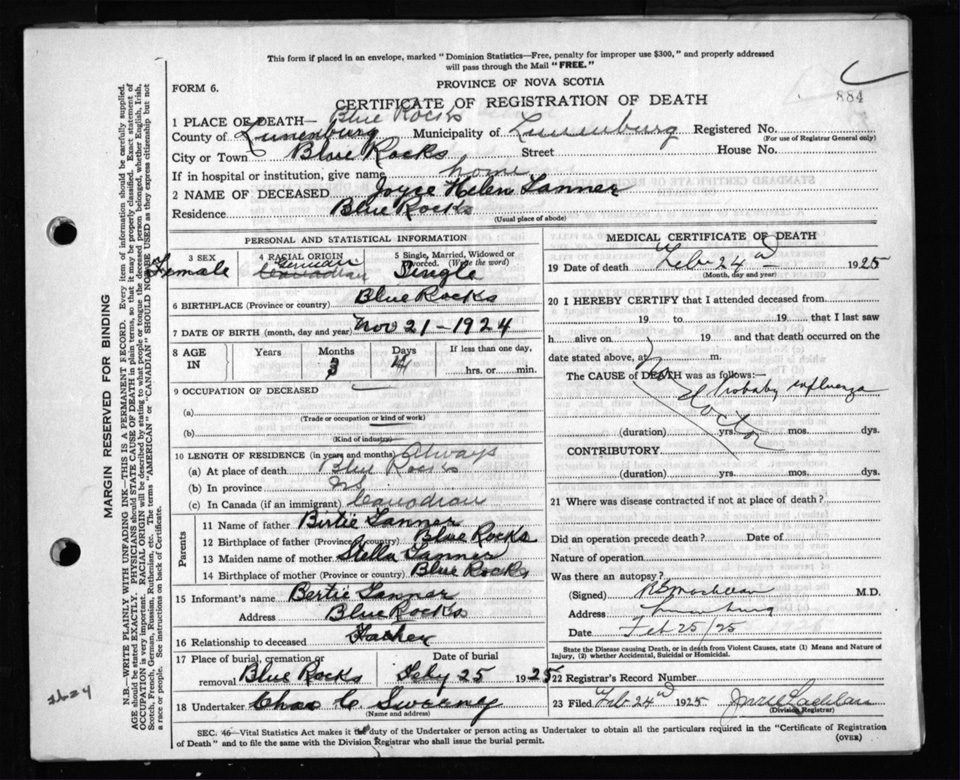 This form if placed in an envelope, marked "Dominion Statistics—Free, penalty for improper use $300," and properly addressed
will pass through the Mail "FREE."
FORM 6.
PROVINCE OF NOVA SCOTIA
884
CERTIFICATE OF REGISTRATION OF DEATH
1 PLACE OF DEATH— Blue Rocks
County of Lunenburg Municipality of Lunenburg Registered No.
(For use of Registrar General only)
City or Town Blue Rocks Street House No.
If in hospital or institution, give name home
2 NAME OF DECEASED Joyce Helen Tanner
Residence Blue Rocks
(Usual place of abode)
PERSONAL AND STATISTICAL INFORMATION
3 SEX 4 RACIAL ORIGIN 5 Single, Married, Widowed or Divorced. (Write the word)
Female German Canadian Single
6 BIRTHPLACE (Province or country) Blue Rocks
7 DATE OF BIRTH (month, day and year) Nov 21-1924
8 AGE IN Years Months Days If less than one day,
3 4 hrs. or min.
9 OCCUPATION OF DECEASED
(a)
(Trade or occupation or kind of work)
(b)
(Kind of industry)
10 LENGTH OF RESIDENCE (in years and months) Always
(a) At place of death Blue Rocks
(b) In province NS
(c) In Canada (if an immigrant) Canadian
Parents
11 Name of father Bertie Tanner
12 Birthplace of father (Province or country) Blue Rocks
13 Maiden name of mother Stella Tanner
14 Birthplace of mother (Province or country) Blue Rocks
15 Informant's name Bertie Tanner
Address Blue Rocks
16 Relationship to deceased Father
17 Place of burial, cremation or removal Date of burial
Blue Rocks Feby 25 1925
18 Undertaker Chas C Sweeny
(Name and address)
MEDICAL CERTIFICATE OF DEATH
19 Date of death Feb 24 1925
(Month, day and year)
20 I HEREBY CERTIFY that I attended deceased from
19 to 19 that I last saw
h alive on 19 and that death occurred on the
date stated above, at m.
The CAUSE of DEATH was as follows:—
No Doctor
Probably influenza
(duration) yrs. mos. dys.
CONTRIBUTORY
(duration) yrs. mos. dys.
21 Where was disease contracted if not at place of death?
Did an operation precede death? Date of
Nature of operation
Was there an autopsy?
(Signed) M.D.
Address Lunenburg
Date Feb 25/25
State the Disease causing Death, or in death from Violent Causes, state (1) Means and Nature of
Injury, (2) whether Accidental, Suicidal or Homicidal.
22 Registrar's Record Number
23 Filed Feb 24 1925
(Division Registrar)
SEC. 46—Vital Statistics Act makes it the duty of the Undertaker or person acting as Undertaker to obtain all the particulars required in the "Certificate of Registration
of Death" and to file the same with the Division Registrar who shall issue the burial permit.
(OVER)
MARGIN RESERVED FOR BINDING
N.B.—WRITE PLAINLY WITH UNFADING INK—THIS IS A PERMANENT RECORD. Every item of information should be carefully supplied.
AGE should be stated EXACTLY. PHYSICIANS should STATE CAUSE OF DEATH in plain terms, so that it may be properly classified. Exact statement of
OCCUPATION is very important. RACIAL ORIGIN will be described by stating to what people or tongue the deceased person belonged, whether English, Irish,
Scotch, French, German, Russian, Ruthenian, etc. The terms "AMERICAN" or "CANADIAN" SHOULD NOT BE USED as they express citizenship but not
a race or people. See instructions on back of Certificate.